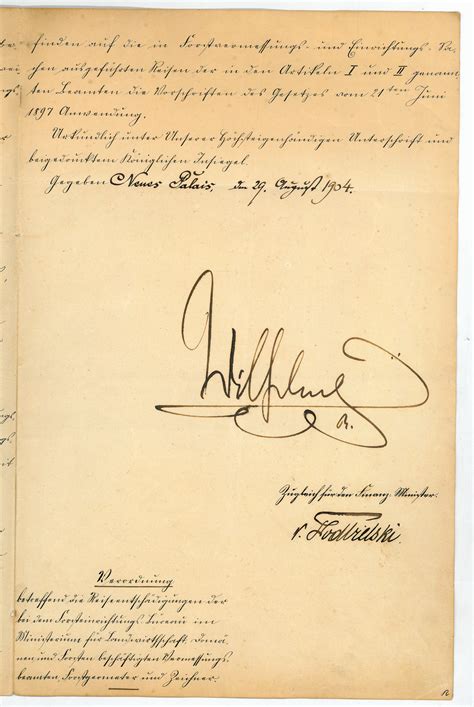 finden auf die in Forstvermessungs- und Einrichtungs-Sa-
chen ausgeführten Reisen der in den Artikeln I und II genann-
ten Beamten die Vorschriften des Gesetzes vom 21ten Juni
1897 Anwendung.
Urkundlich unter Unserer Höchsteigenhändigen Unterschrift und
beigedrucktem Königlichen Insiegel.
Gegeben Neues Palais, den 29. August 1904.
Wilhelm
R.
Zugleich für den Finanz-Minister.
v. Podbielski.
Verordnung
betreffend die Reiseentschädigungen der
bei dem Forsteinrichtungs-Bureau im
Ministerium für Landwirthschaft, Domä-
nen und Forsten beschäftigten Vermessungs-
beamten, Forstgeometer und Zeichner.